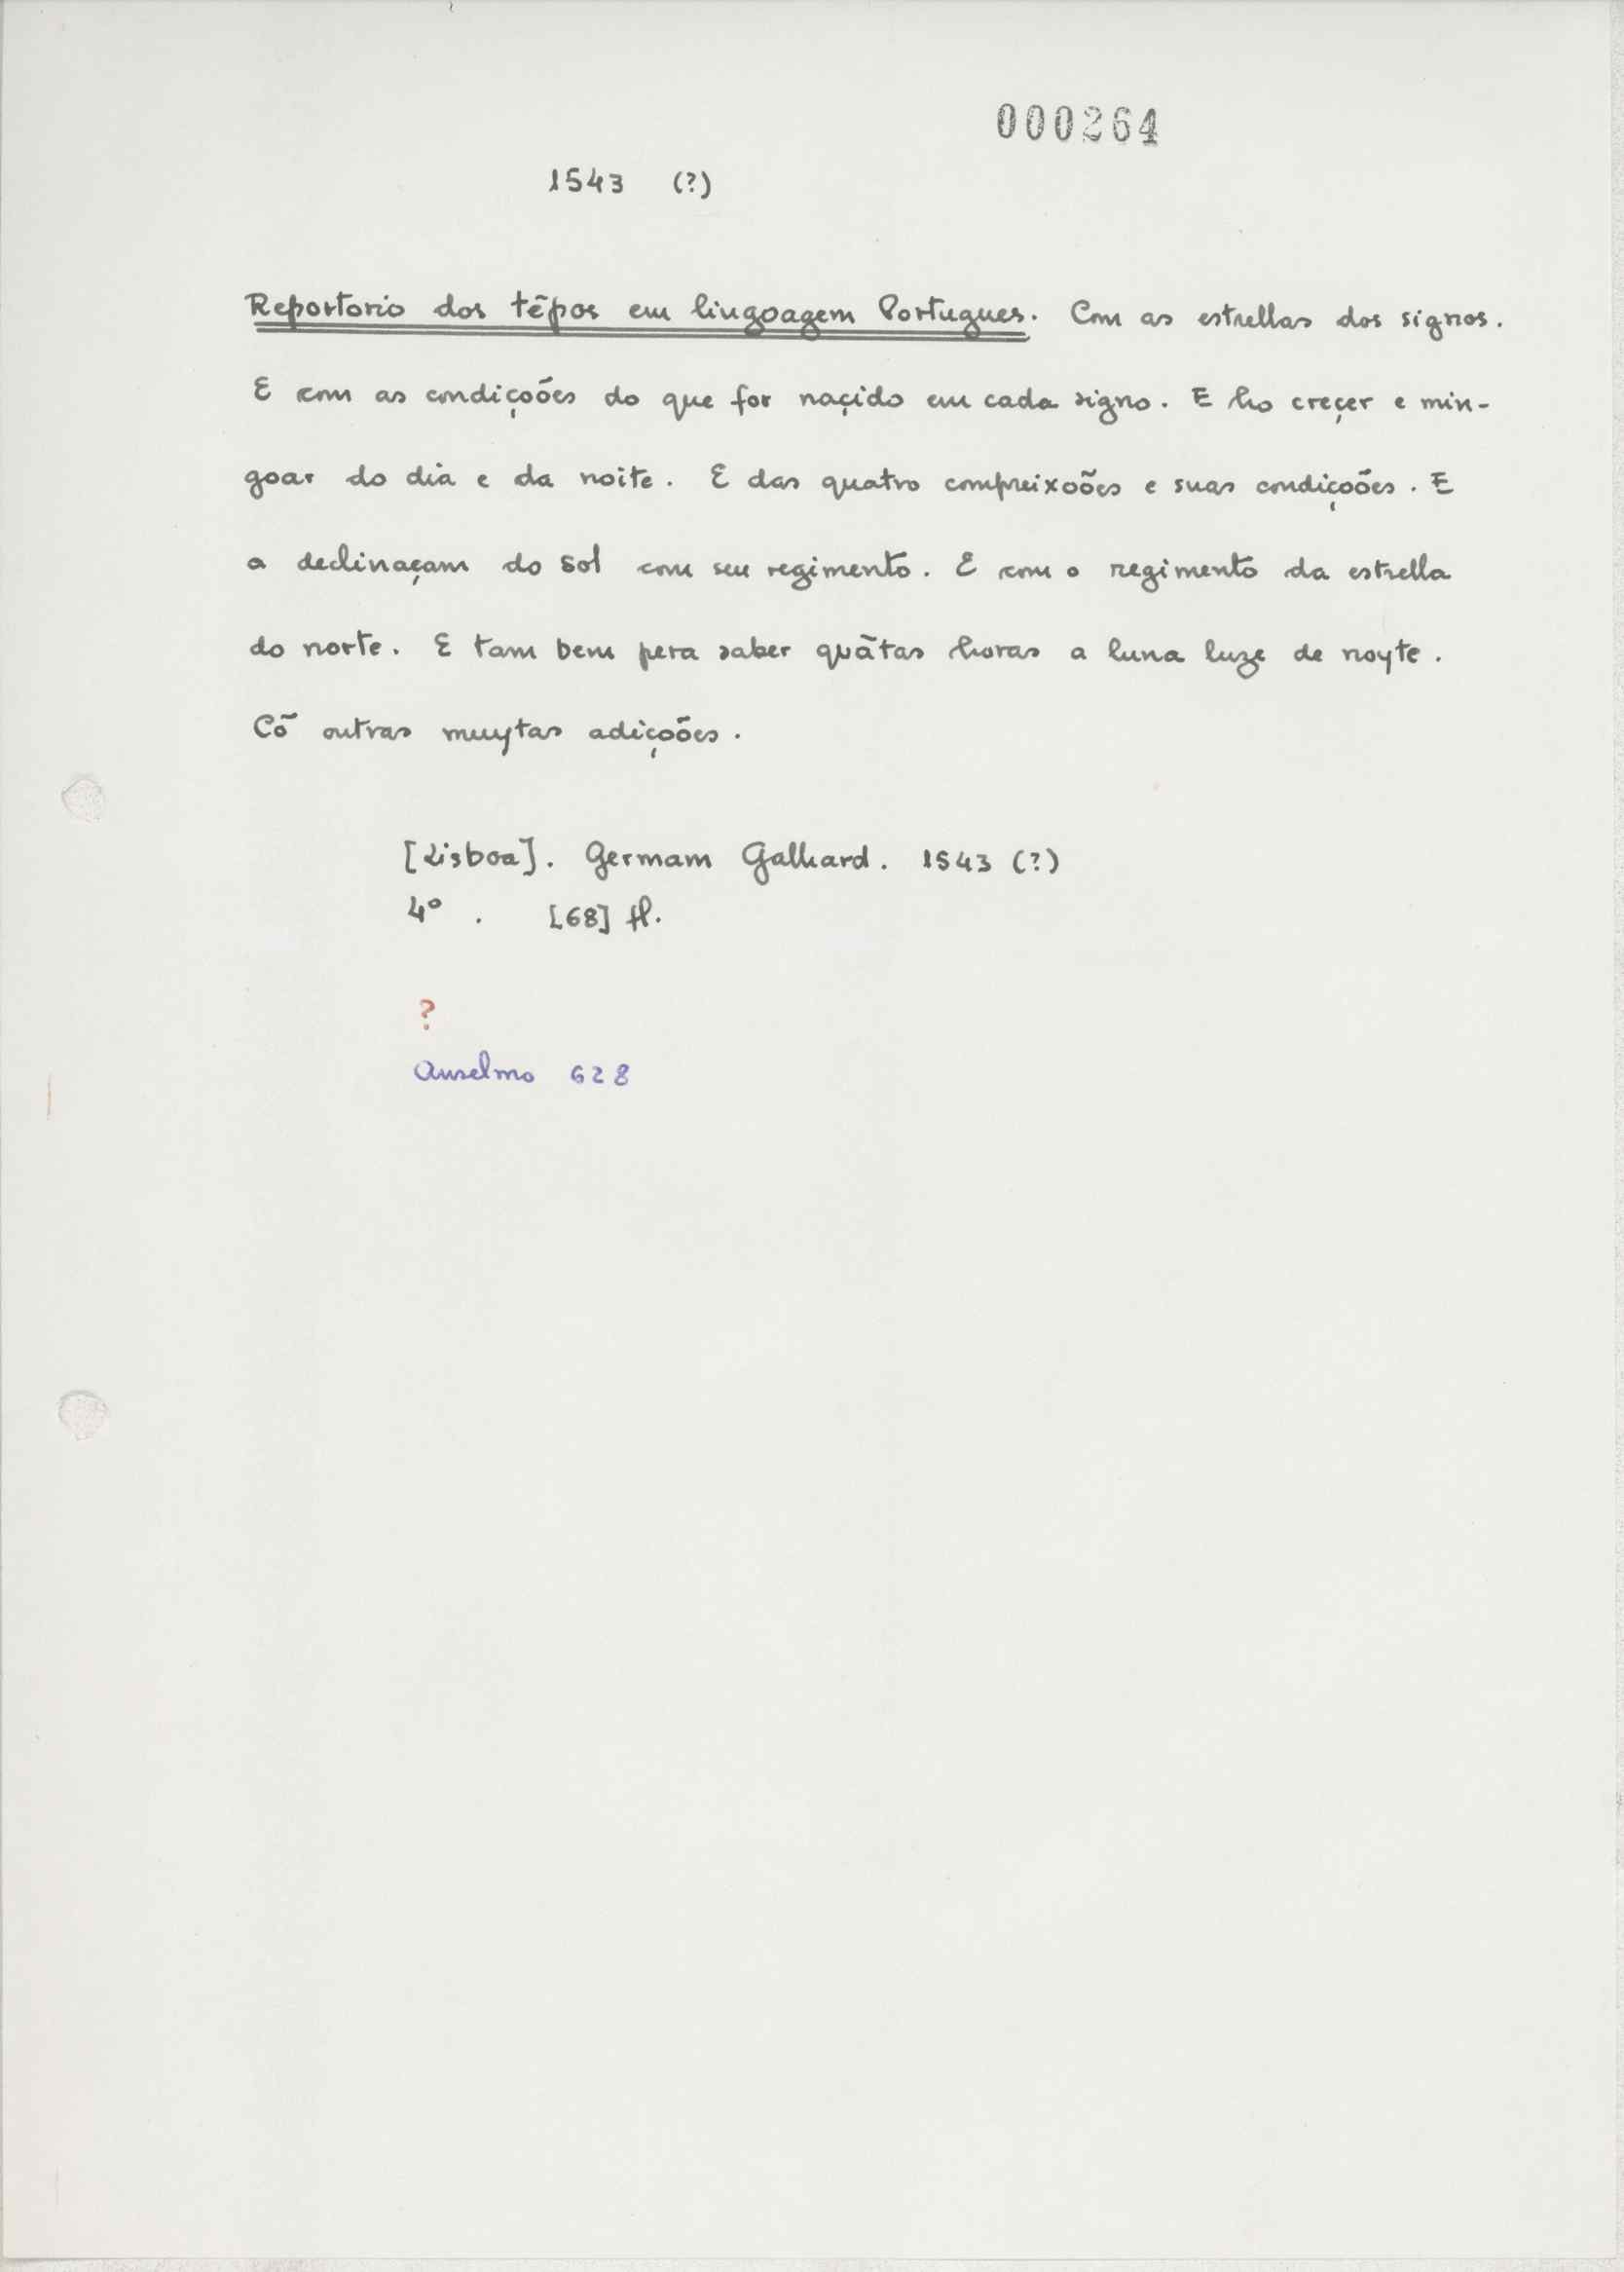 000264
1543 (?)
Reportorio dos tẽpos em lingoagem Portugues. Com as estrellas dos signos.
E com as condiçoões do que for naçido em cada signo. E ho creçer e min-
goar do dia e da noite. E das quatro compreixoões e suas condiçoões. E
a declinaçam do sol com seu regimento. E com o regimento da estrella
do norte. E tam bem pera saber quãtas horas a luna luze de noyte.
Cõ outras muytas adiçoões.
[Lisboa]. Germam Galhard. 1543 (?)
4º. [68] fl.
?
Anselmo 628